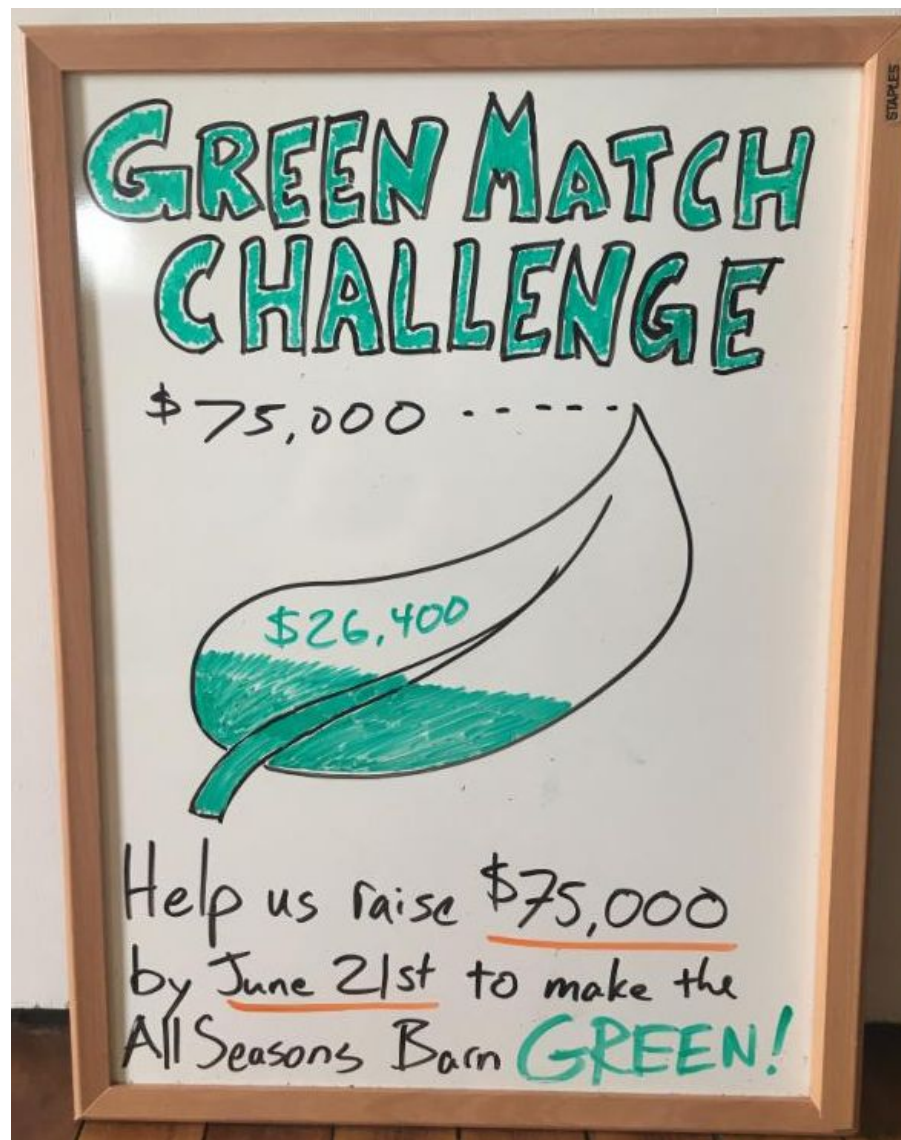 STAPLES
GREEN MATCH
CHALLENGE
$75,000 ------
$26,400
Help us raise $75,000
by June 21st to make the
All Seasons Barn GREEN!